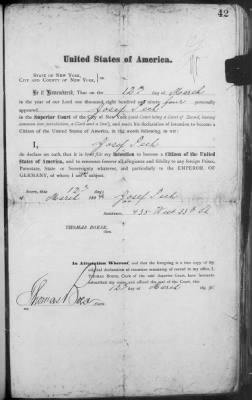 42
United States of America.
STATE OF NEW YORK,
CITY AND COUNTY OF NEW YORK, } ss.
Be it Remembered, That on the 12th day of March
in the year of our Lord one thousand eight hundred and ninety four personally
appeared Josef Pech
in the Superior Court of the City of New York (said Court being a Court of Record, having
common law jurisdiction, a Clerk and a Seal), and made his declaration of intention to become a
Citizen of the United States of America, in the words following, to wit:
I, Josef Pech
do declare on oath, that it is bona fide my intention to become a Citizen of the United
States of America, and to renounce forever all allegiance and fidelity to any foreign Prince,
Potentate, State or Sovereignty whatever, and particularly to the EMPEROR OF
GERMANY, of whom I am a subject.
Sworn, this 12th day
of March 1894
Josef Pech
RESIDENCE, 435 West 53rd St
THOMAS BOESE,
Clerk.
In Attestation Whereof, and that the foregoing is a true copy of the
original declaration of intention remaining of record in my office, I,
THOMAS BOESE, Clerk of the said Superior Court, have hereunto
subscribed my name and affixed the seal of the Court, this
12th day of March 1894
Thomas Boese
Clerk.